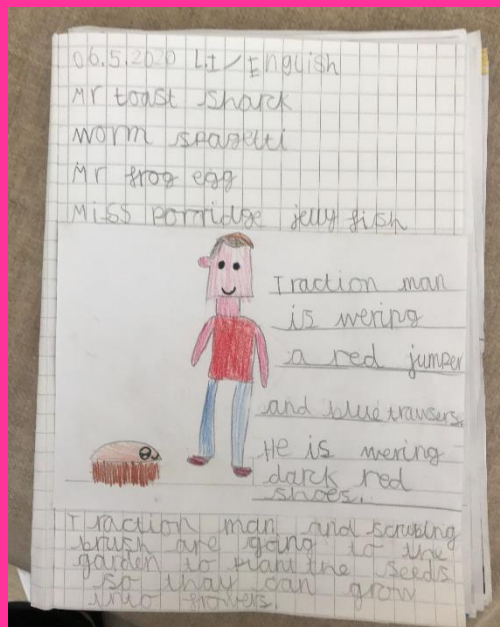 06.5.2020 L.I/English
Mr toast shark
worm spagetti
Mr frog egg
Miss porridge jelly fish
Traction man
is wering
a red jumper
and blue trawsers.
He is wering
dark red
shoes.
Traction man and scrubing
brush are going to the
garden to plant the seeds
so thay can grow
into flowers.